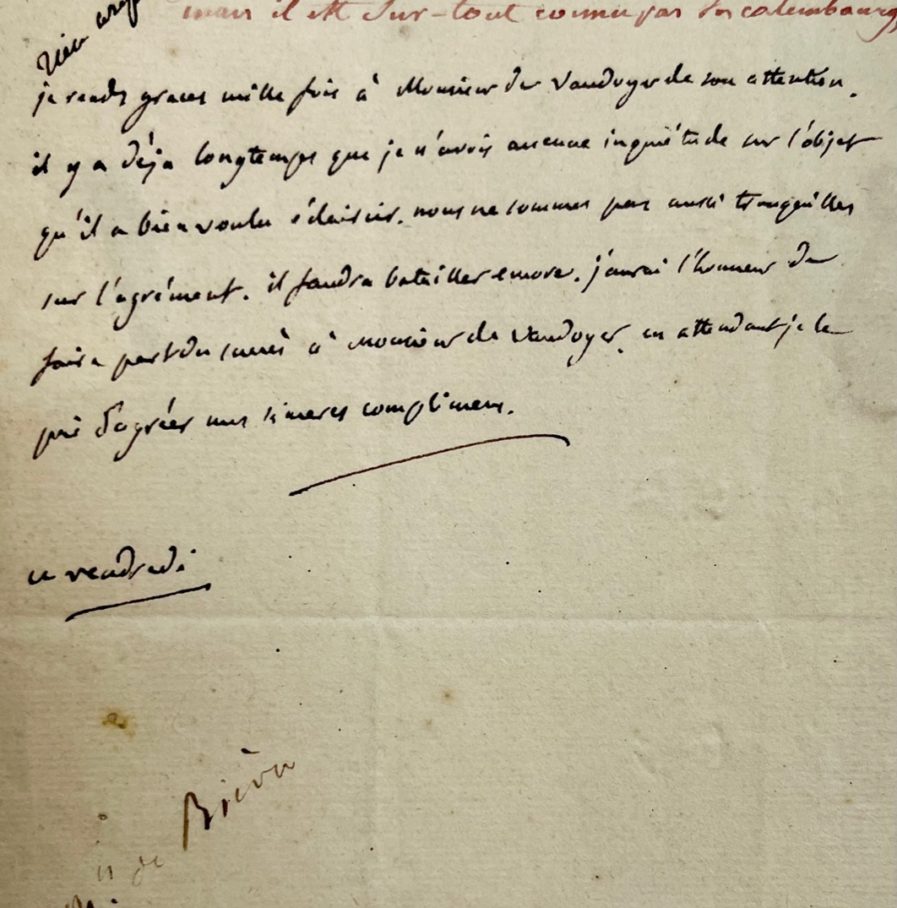 mais il est sur-tout connu par ses calembourgs
je rends graces mille fois à Monsieur de Vaudoyer de son attention.
il y a déja longtemps que je n'avois aucune inquiétude sur l'objet
qu'il a bien voulu éclaircir. nous ne sommes pas aussi tranquilles
sur l'agrément. il faudra batailler encore. j'aurai l'honneur de
faire part du succès à Monsieur de Vaudoyer. en attendant je le
prie d'agréer mes sinceres complimens.
ce vendredi
de Bièvre